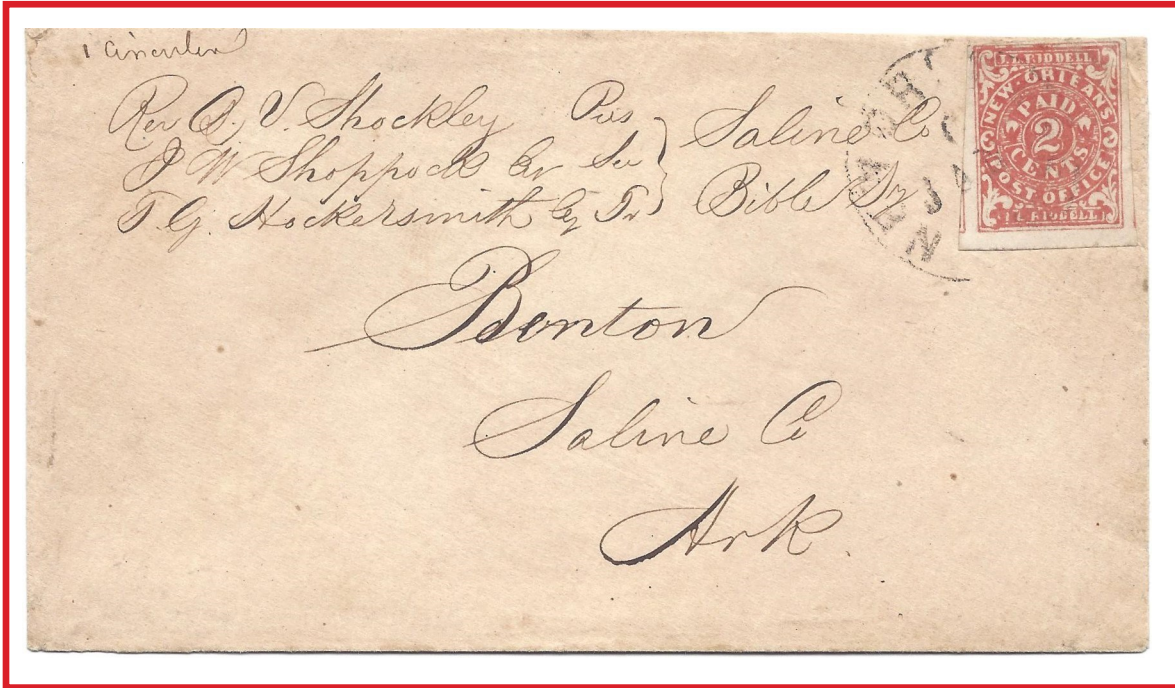 1 Circular
Rev Q. V. Shockley Pres
J W Shoppock Cor Sec
T G. Hockersmith Tr
Saline Co
Bible Sy
Benton
Saline Co
Ark.
J. L. RIDDELL
NEW ORLEANS
PAID
2
CENTS
POST OFFICE
J. L. RIDDELL
NEW OR